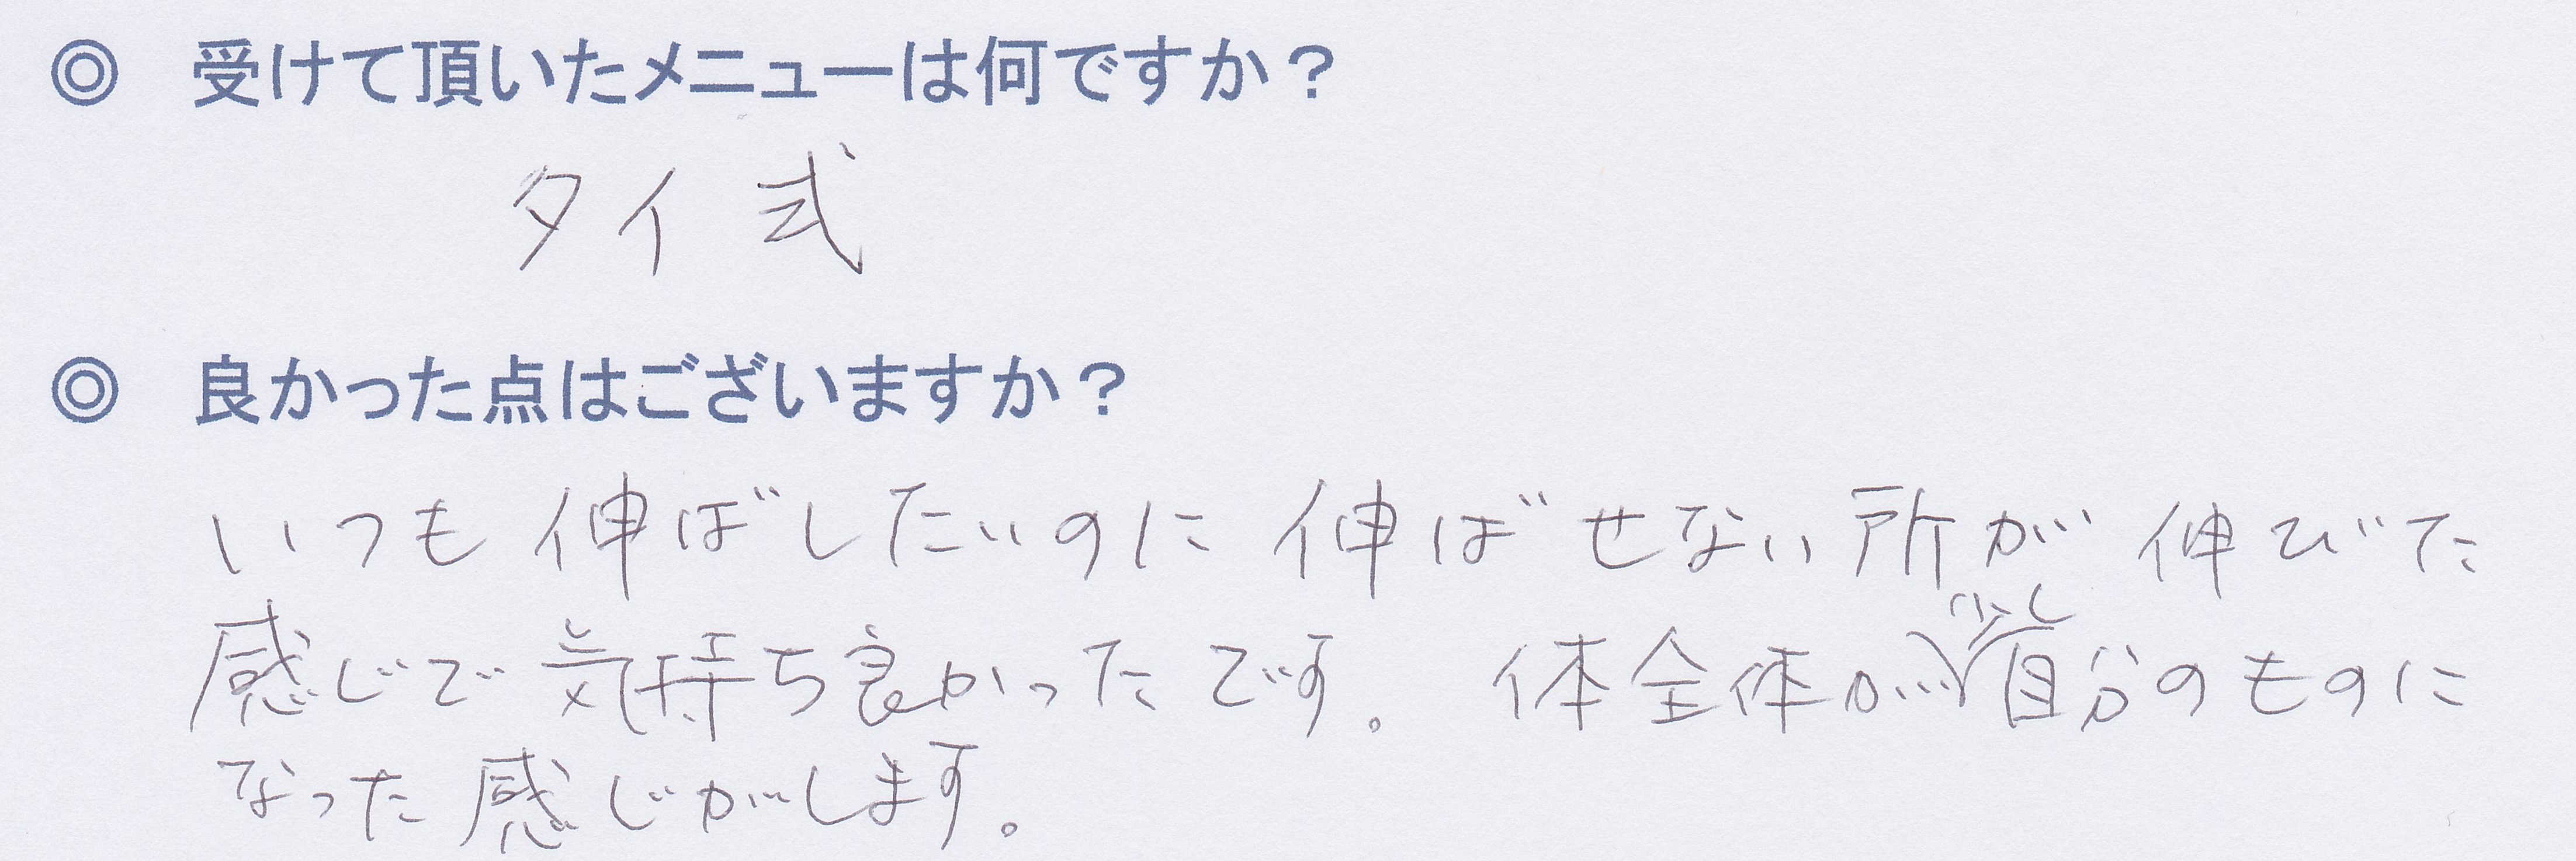 ◎ 受けて頂いたメニューは何ですか？
タイ式
◎ 良かった点はございますか？
いつも伸ばしたいのに伸ばせない所が伸びた
感じで気持ち良かったです。 体全体が少し自分のものに
なった感じがします。